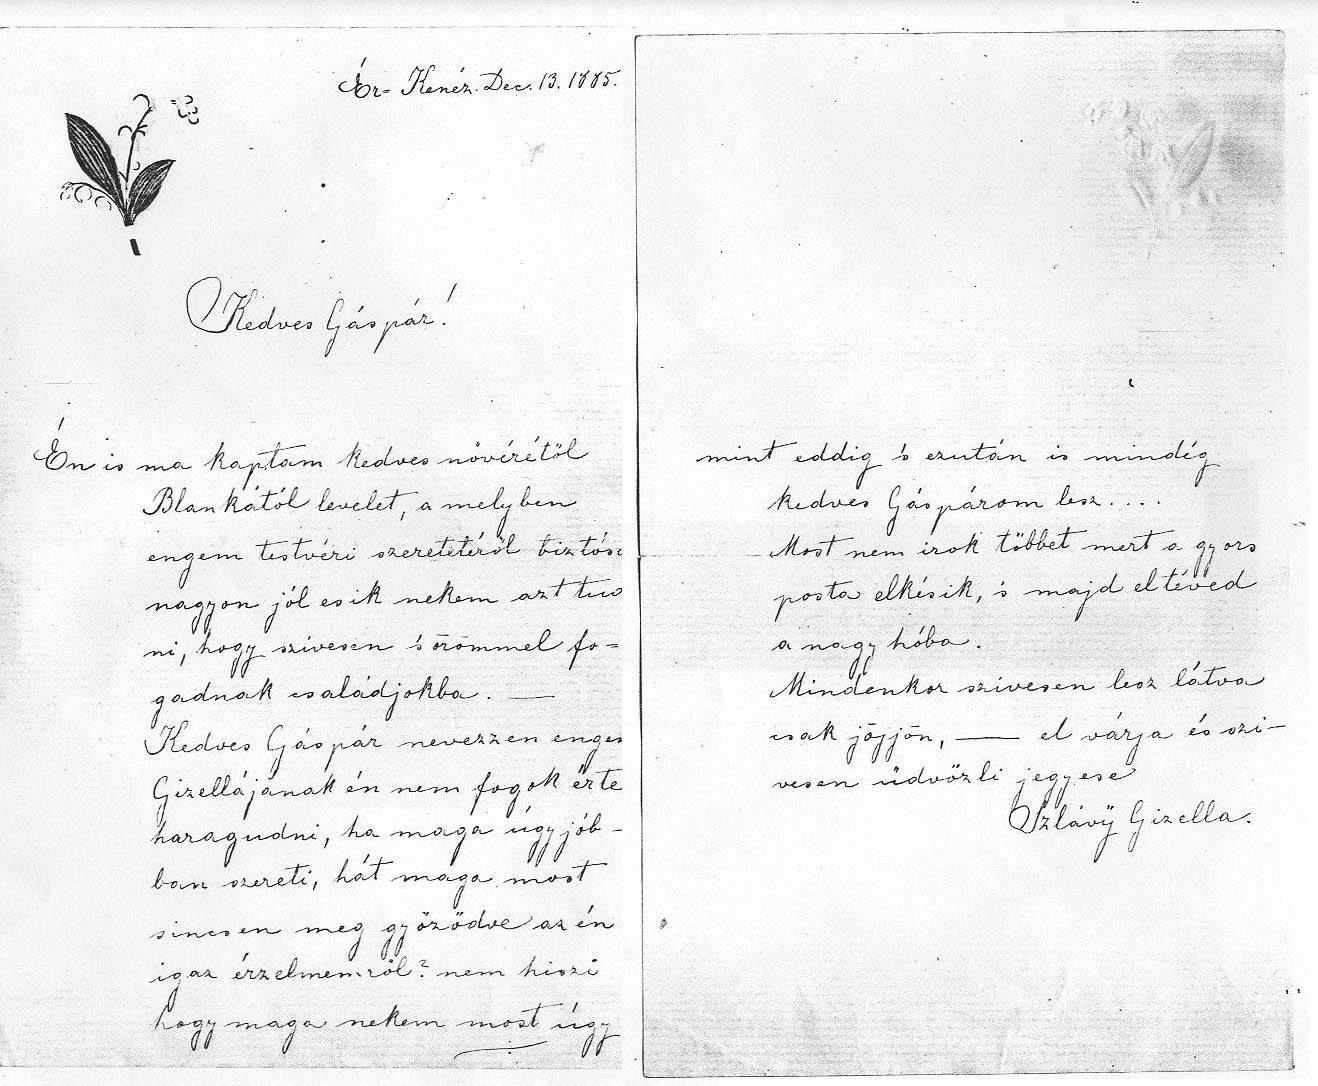 Ér= Kenéz. Dec. 13. 1885.
Kedves Gáspár!
Én is ma kaptam kedves növérétöl
Blankától levelet, a melyben
engem testvéri szeretetéröl biztósi
nagyon jól esik nekem azt tud
ni, hogy szivesen 's örömmel fo=
gadnak családjokba. —
Kedves Gáspár nevezzen enge
Gizellájának én nem fogok érte
haragudni, ha maga úgy jób-
ban szereti, hát maga most
sincsen meg gyözödve az én
igaz érzelmemröl? nem hiszi
hogy maga nekem most úgy
mint eddig 's ezután is mindég
kedves Gáspárom lesz....
Most nem irok többet mert a gyors
posta elkésik, 's majd eltéved
a nagy hóba.
Mindenkor szivesen lesz látva
csak jöjjön, — el várja és szi-
vesen üdvözli jegyese
Szlávÿ Gizella.